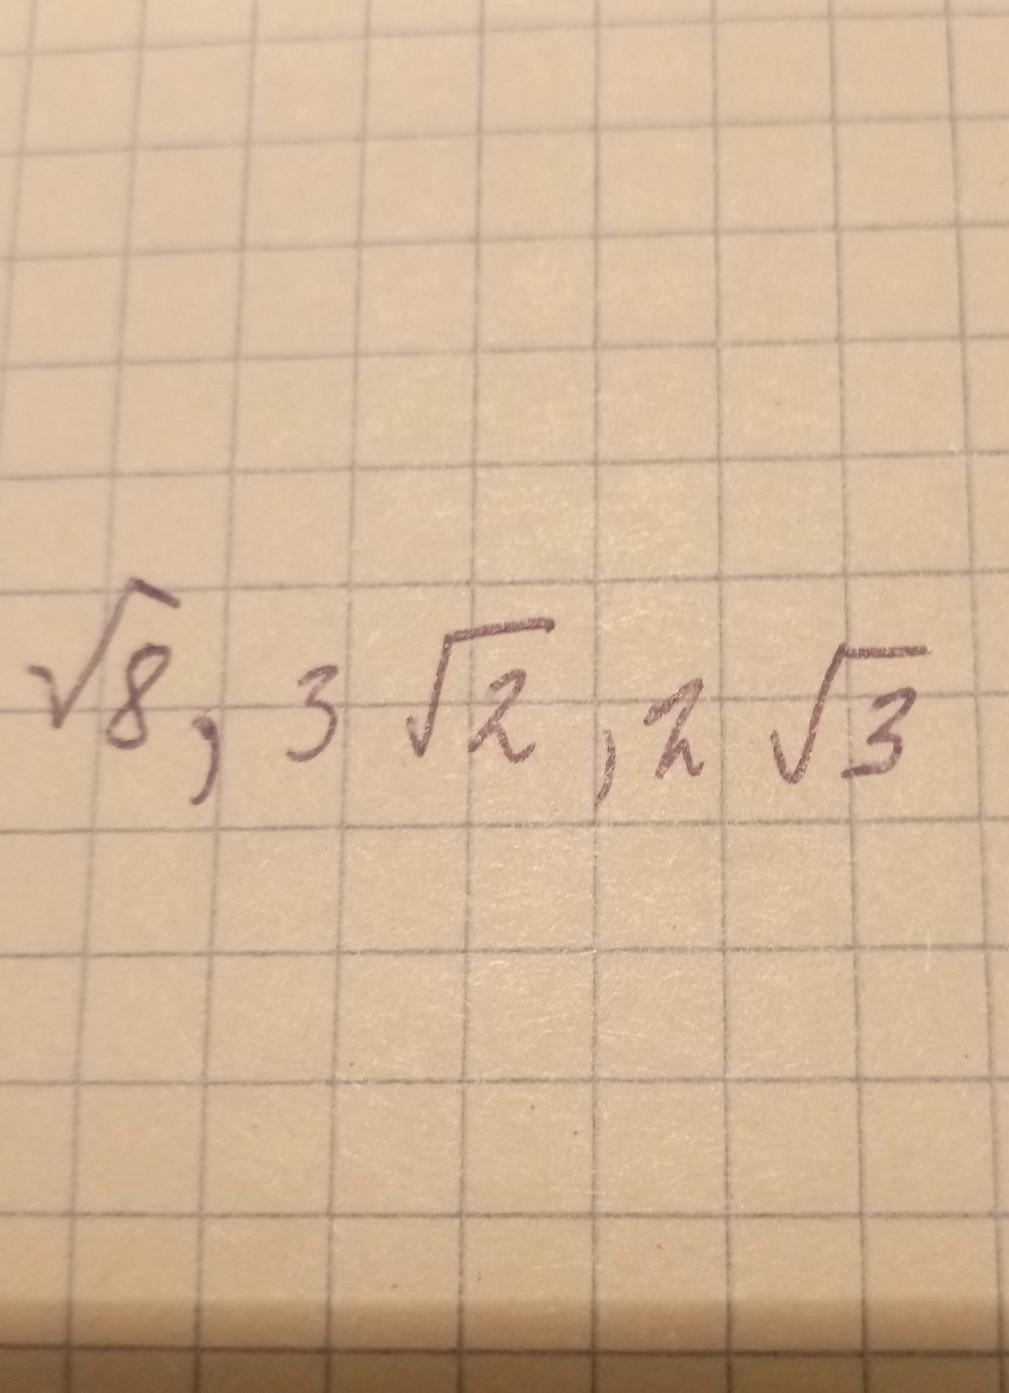 √8, 3 √2, 2 √3